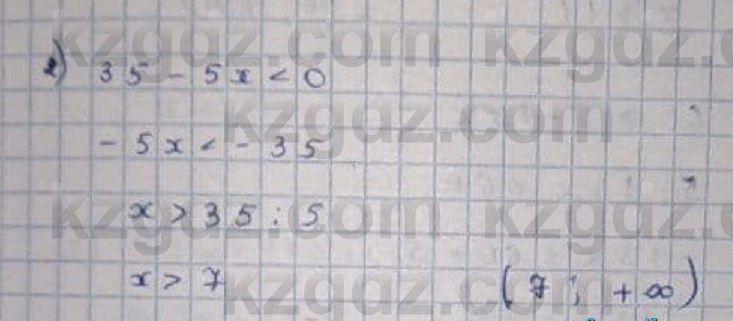 2) 35 - 5x < 0
- 5x < - 35
x > 35 : 5
x > 7 (7 ; + ∞)
kzgdz.com kzgdz.
kzgdz.com
kzgdz.com kzgdz.
kzgdz.com